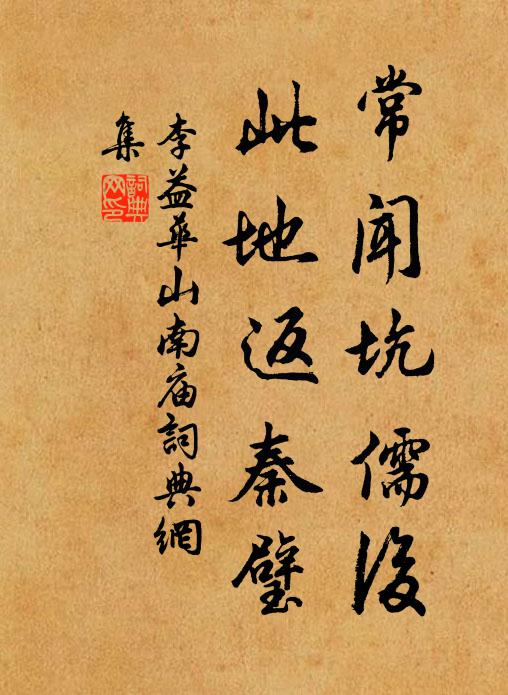 常闻坑儒後
此地返秦璧
李益華山南庙詞典網
集
詞典
网印